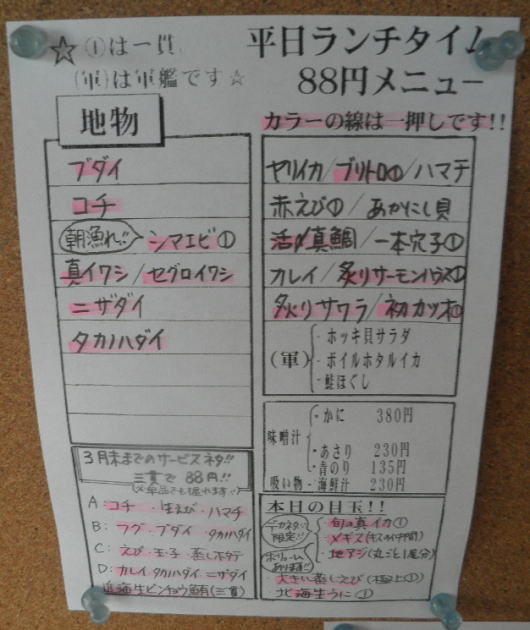 ☆①は一貫、
(軍)は軍艦です☆
平日ランチタイム
88円メニュー
地物
ブダイ
コチ
朝漁れ!! シマエビ①
真イワシ/セグロイワシ
ニザダイ
タカノハダイ
カラーの線は一押しです!!
ヤリイカ/ブリトロ①/ハマチ
赤えび①/あかにし貝
活〆真鯛/一本穴子①
カレイ/炙りサーモンハラス①
炙りサワラ/初カツオ①
(軍)
・ホッキ貝サラダ
・ボイルホタルイカ
・鮭ほぐし
味噌汁
・かに 380円
・あさり 230円
・青のり 135円
吸い物・海鮮汁 230円
3月末までのサービスネタ!!
三貫で88円!!
A:コチ・生えび・ハマチ
B:フグ・ブダイ・タカノハダイ
C:えび・玉子・蒸しホタテ
D:カレイ タカノハダイ・ニザダイ
近海生ビンチョウ鮪(三貫)
本日の目玉!!
デカネタ!! 限定!!
ボリューム あります!!
・旬の真イカ①
・メギス(キスの仲間)
・地アジ(丸ごと1尾分)
・大きい蒸しえび(極上①)
・北海生うに①